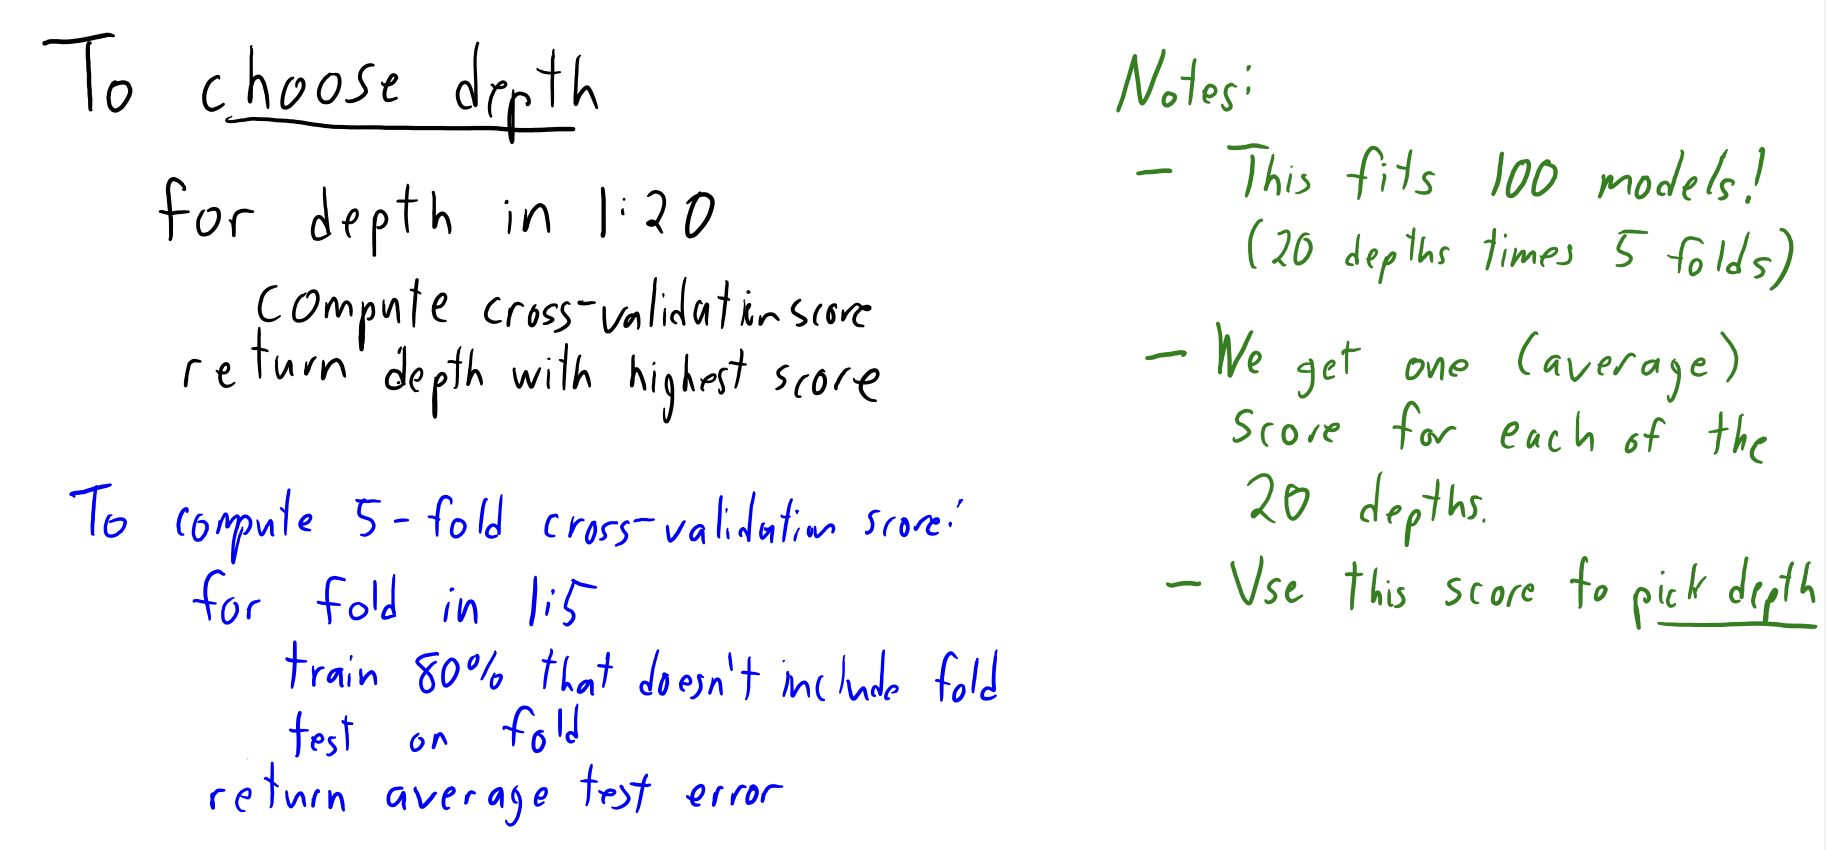 To choose depth
for depth in 1:20
compute cross-validation score
return depth with highest score
To compute 5-fold cross-validation score:
for fold in 1:5
train 80% that doesn't include fold
test on fold
return average test error
Notes:
- This fits 100 models!
(20 depths times 5 folds)
- We get one (average)
score for each of the
20 depths.
- Use this score to pick depth